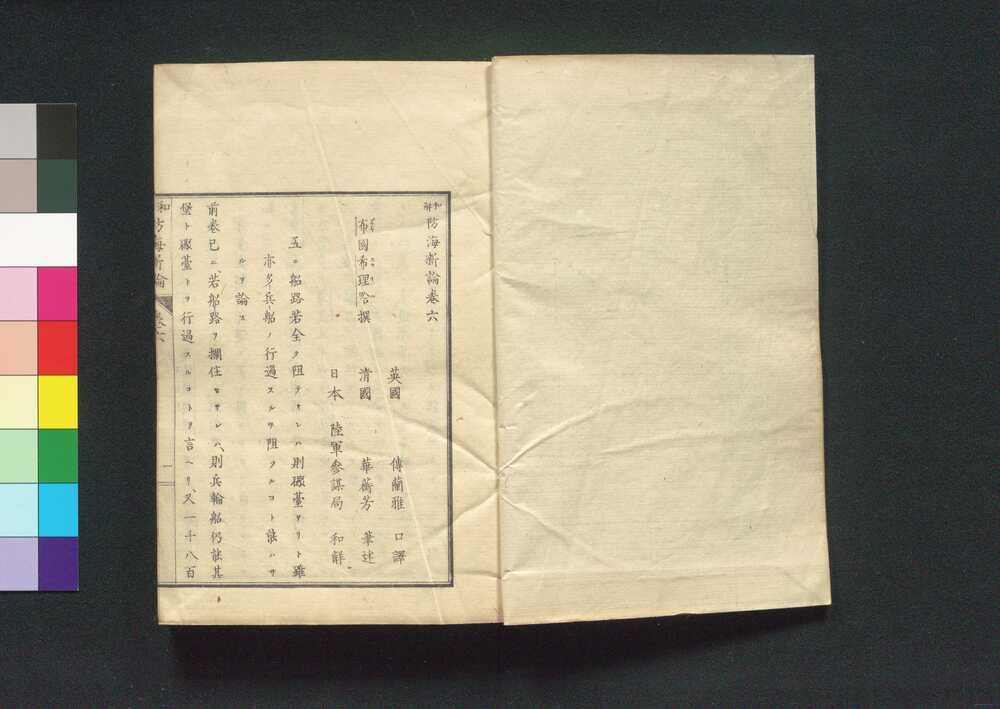 和解 防海新論卷六
英國 傅蘭雅 口譯
布國希理哈撰 清國 華蘅芳 筆述
日本 陸軍參謀局 和解
五ニ船路若全ク阻テサレハ則礟臺アリト雖
亦多ク兵船ノ行過スルヲ阻クルコト能ハサ
ルヲ論ス
前卷已ニ若船路ヲ攔住セサレハ則兵輪船仍能其
堡ト礟臺トヲ行過スルコトヲ言ヘリ又一千八百
和解 防海新論 卷六 一